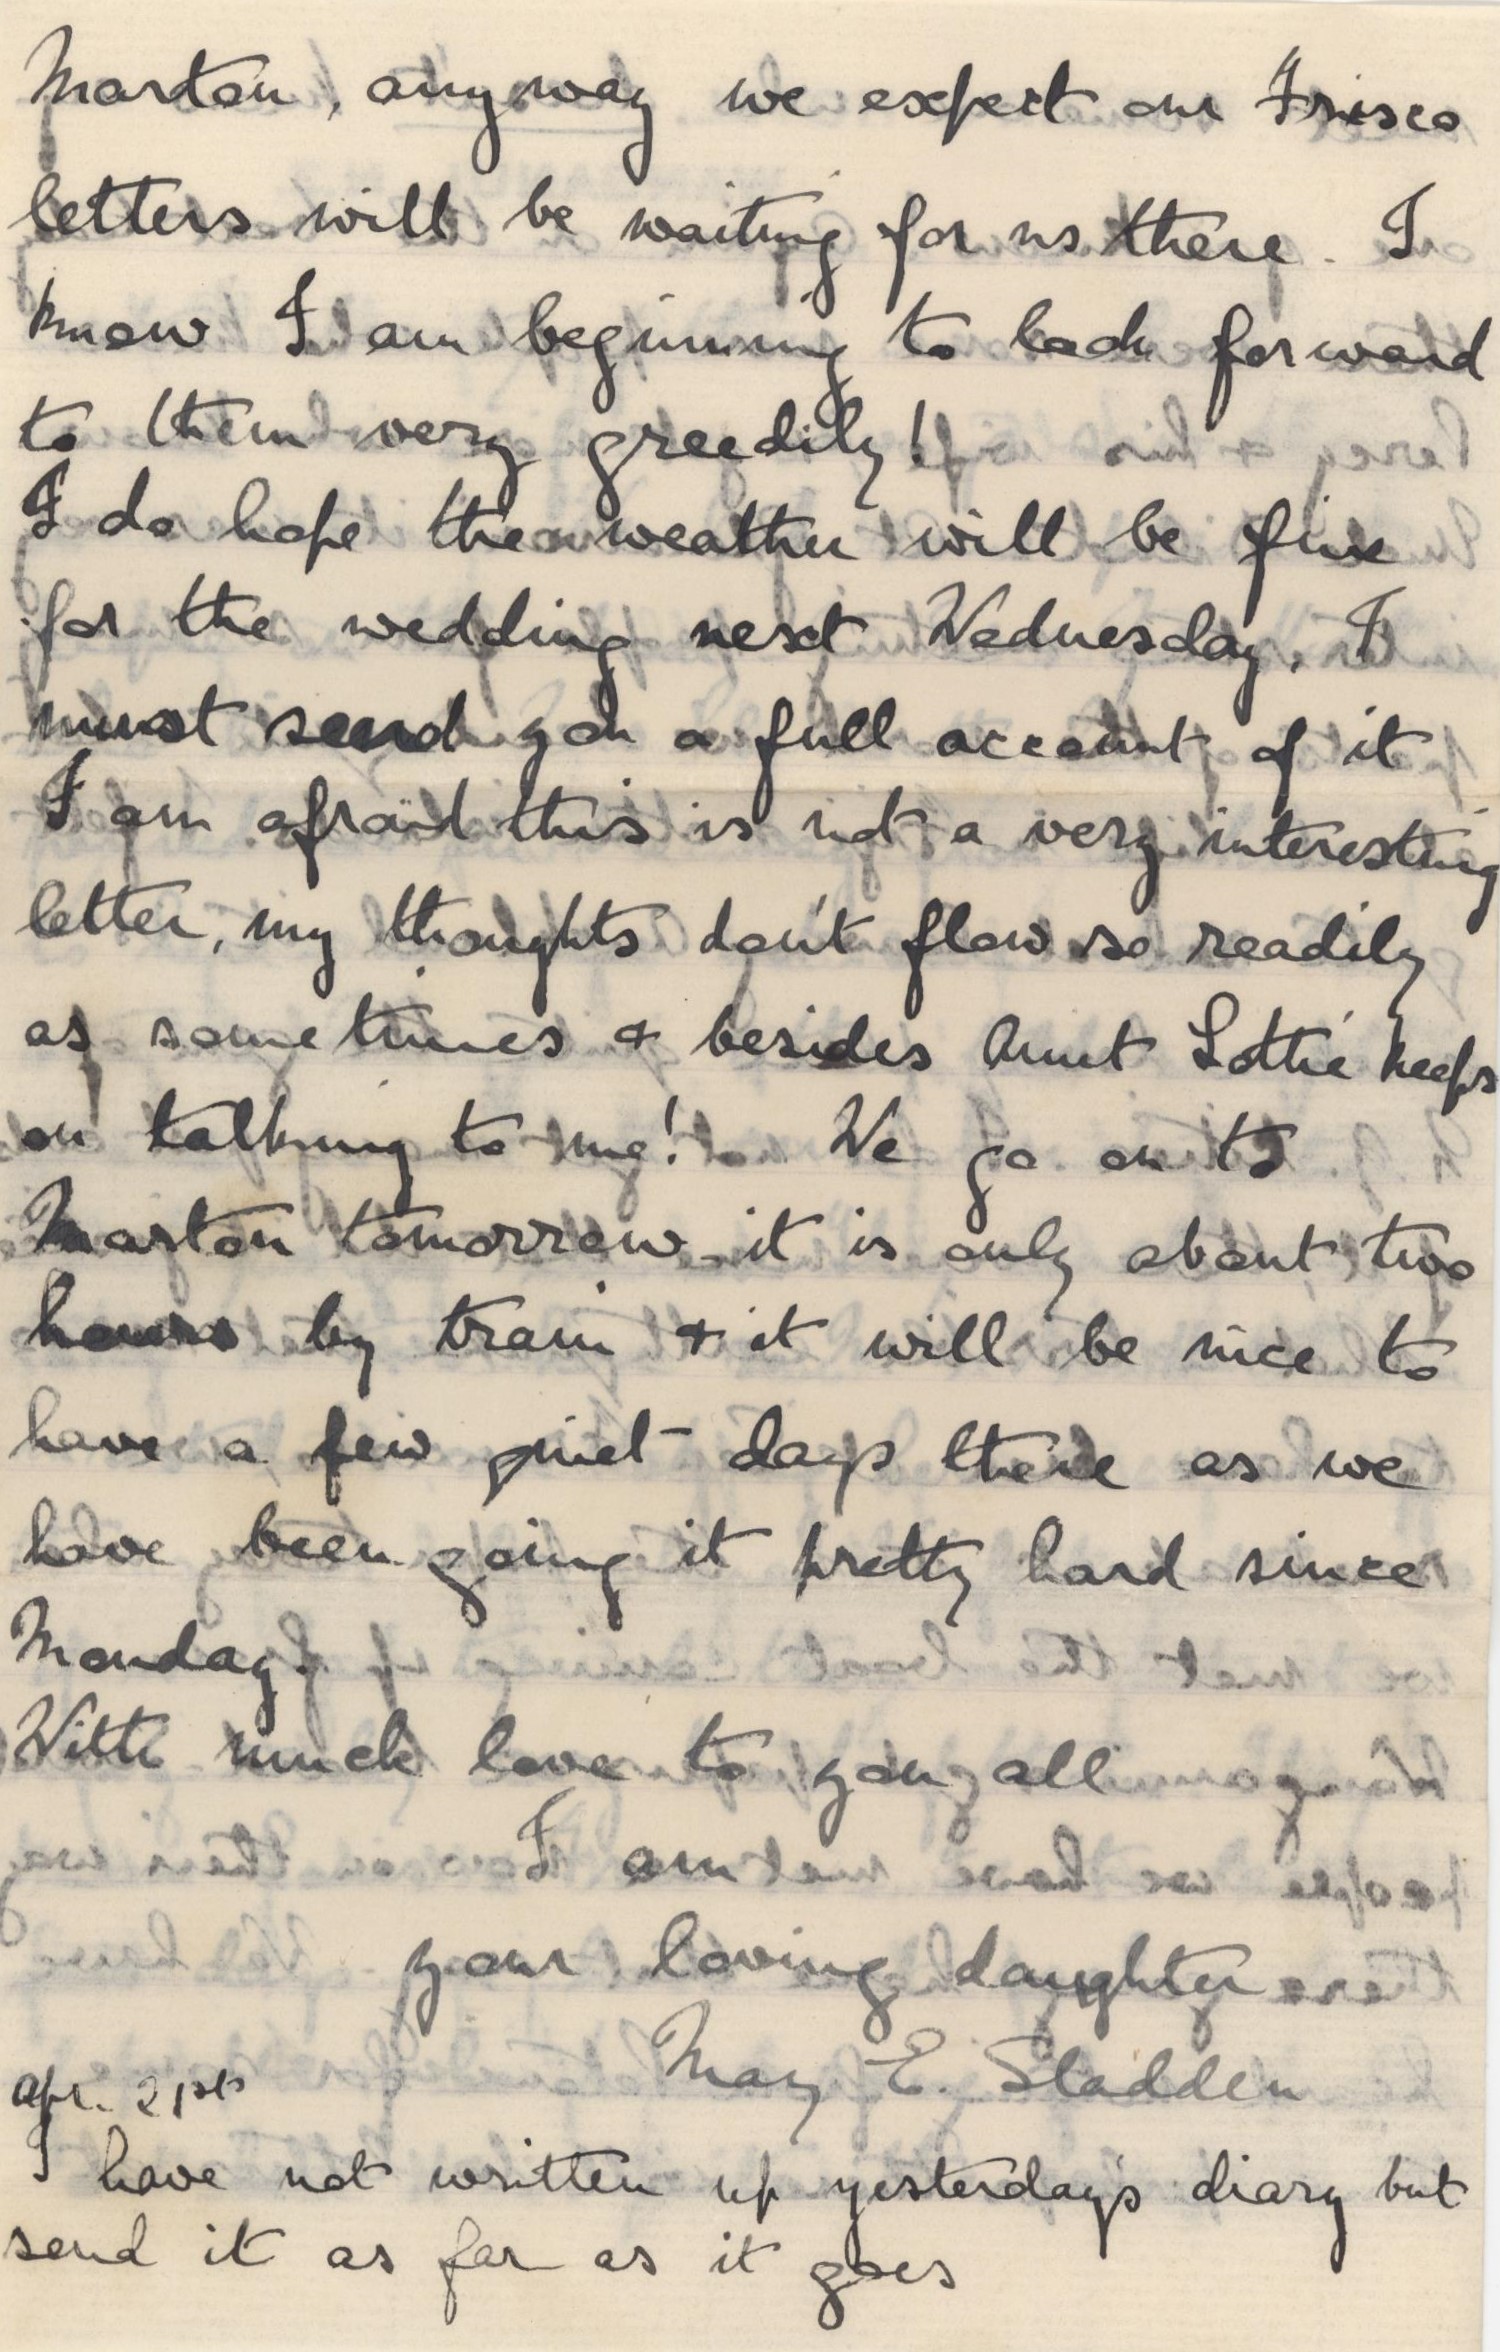 Marton, anyway we expect our Frisco
letters will be waiting for us there. I
know I am beginning to look forward
to them very greedily!
I do hope the weather will be fine
for the wedding next Wednesday. I
must send you a full account of it
I am afraid this is not a very interesting
letter, my thoughts don't flow so readily
as sometimes & besides Aunt Lottie keeps
on talking to me! We go on to
Marton tomorrow it is only about two
hours by train & it will be nice to
have a few quiet days there as we
have been going it pretty hard since
Monday.
With much love to you all
I am
your loving daughter
May E. Sladden
Apr. 21st
I have not written up yesterday's diary but
send it as far as it goes